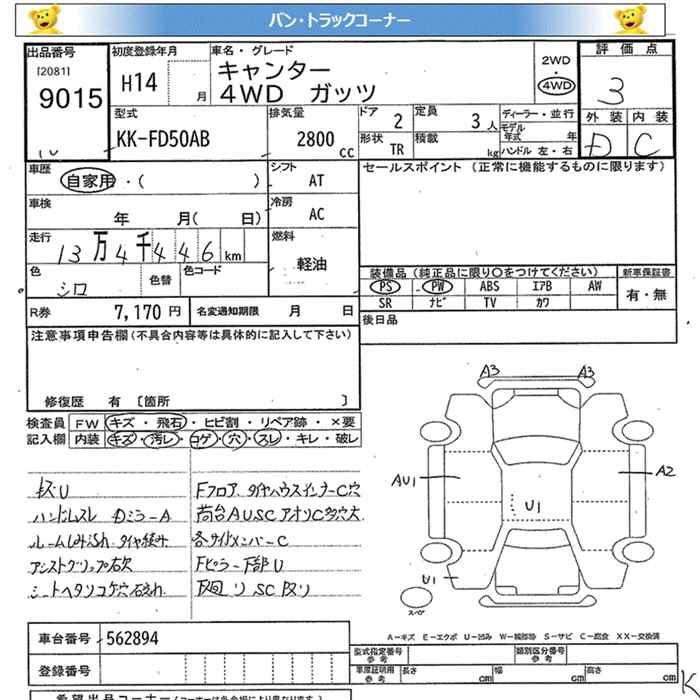 バン・トラックコーナー
出品番号
[2081]
9015
初度登録年月
H14
月
車名・グレード
キャンター
4WD ガッツ
2WD
4WD
評価点
3
外装 内装
D C
型式
KK-FD50AB
排気量
2800
cc
ドア 2
定員 3 人
形状 TR
積載 kg
ディーラー・並行
モデル年式 年
ハンドル 左・右
車歴
自家用・( )
シフト
AT
車検
年 月( 日)
冷房
AC
走行
13万4千446km
燃料
軽油
色
シロ
色替
色コード
R券 7,170円
名変通知期限 月 日
セールスポイント (正常に機能するものに限ります)
装備品(純正品に限り○をつけてください)
新車保証書
PS PW ABS エアB AW
SR ナビ TV カワ
有・無
後日品
注意事項申告欄(不具合内容等は具体的に記入して下さい)
修復歴 有 [箇所 ]
検査員
記入欄
FW キズ・飛石・ヒビ割・リペア跡・×要
内装 キズ・汚レ・コゲ・穴・スレ・キレ・破レ
ハンドルスレ Dミラ-A
シートヘタリコゲ穴
Fフロア、タイヤハウスインナーC穴
荷台AUSC アオリC多穴大
各サイドメンバーC
Fピラー下部U
A3 A3
AU1
A2
U1
U1
スペア
A-キズ E-エクボ U-凹み W-補修跡 S-サビ C-腐食 XX-交換済
車台番号 562894
登録番号
型式指定番号
参考
類別区分番号
参考
車庫証明用
参考
長さ cm 幅 cm 高さ cm
希望出品コーナー